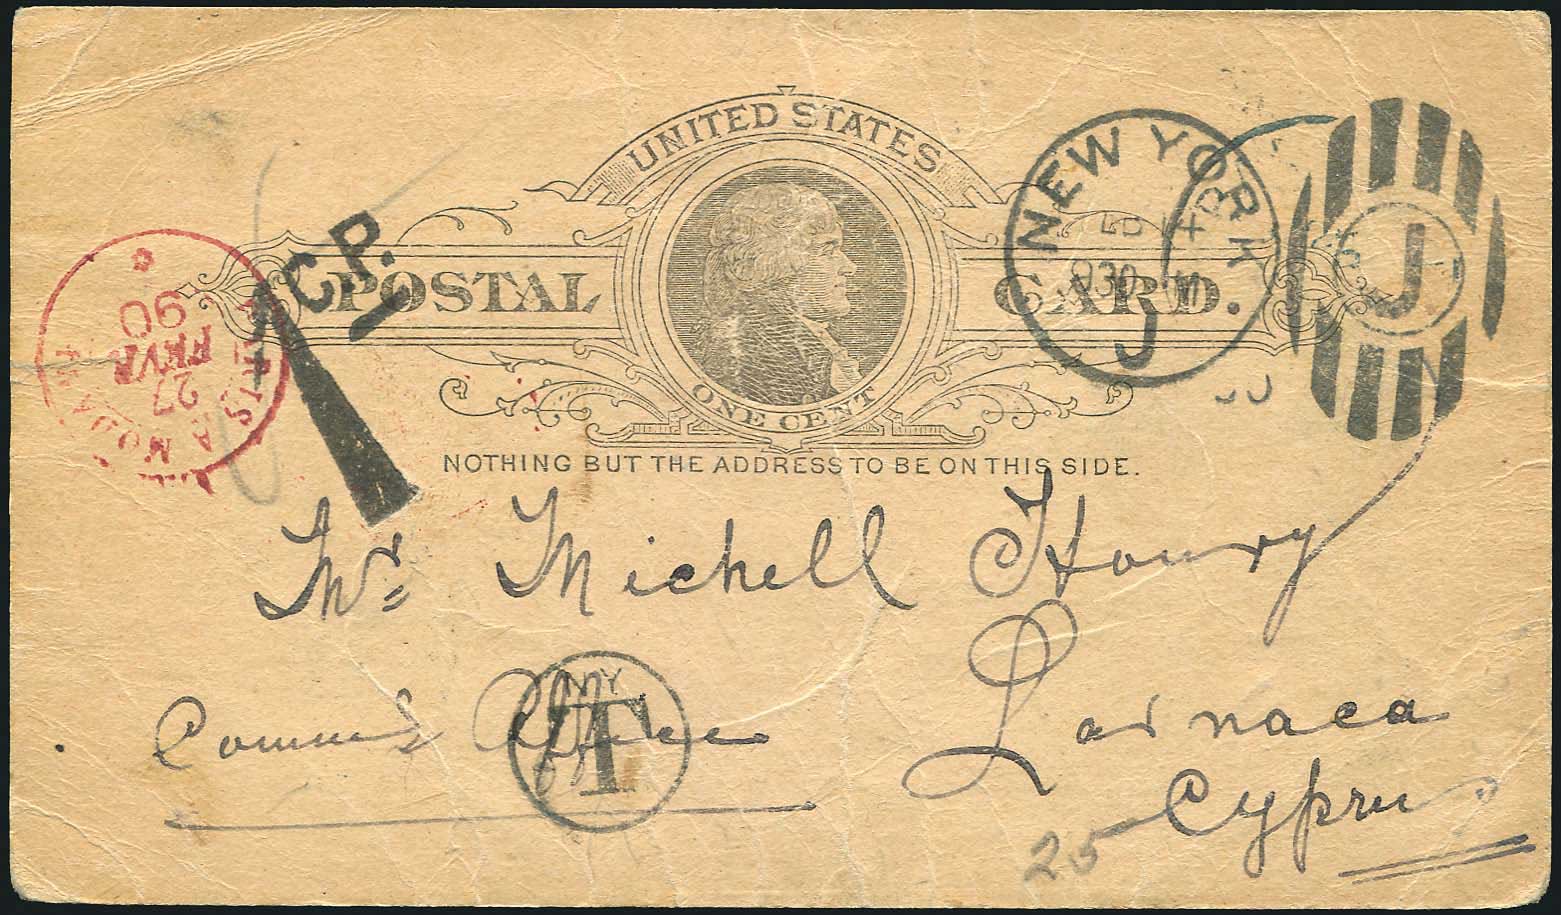 UNITED STATES
POSTAL CARD.
ONE CENT
NOTHING BUT THE ADDRESS TO BE ON THIS SIDE.
NEW YORK
930
J
J
1 C.P.
PARIS
27
FEVR
90
Mr Michell Houry
Larnaca
Cyprus
Office
NY
T
25